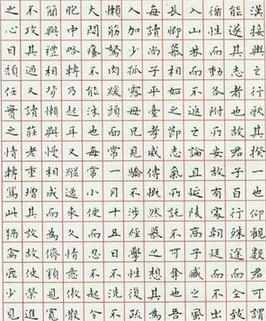 漢接輿之行歌其揆一也仰瞻數君可謂
能遂其志者也故君子百行殊途而同致
循性而動各附所安故有處朝廷而不出
入山林而不反之論且延陵高子臧之風
長卿慕相如之節志氣所託不可奪也吾
每讀尚子平臺孝威傳慨然慕之想其為
人少加孤露母兄見驕不涉經學性復疏
懶筋駑肉緩頭面常一月十五日不洗不
大悶癢不能沐也每常小便而忍不起令
胞中略轉乃起耳又縱逸來久情意傲散
簡與禮相背懶與慢相成而為儕類見寬
不攻其過又讀莊老重增其放故使榮進
之心日頹任實之情轉篤此猶禽鹿少見